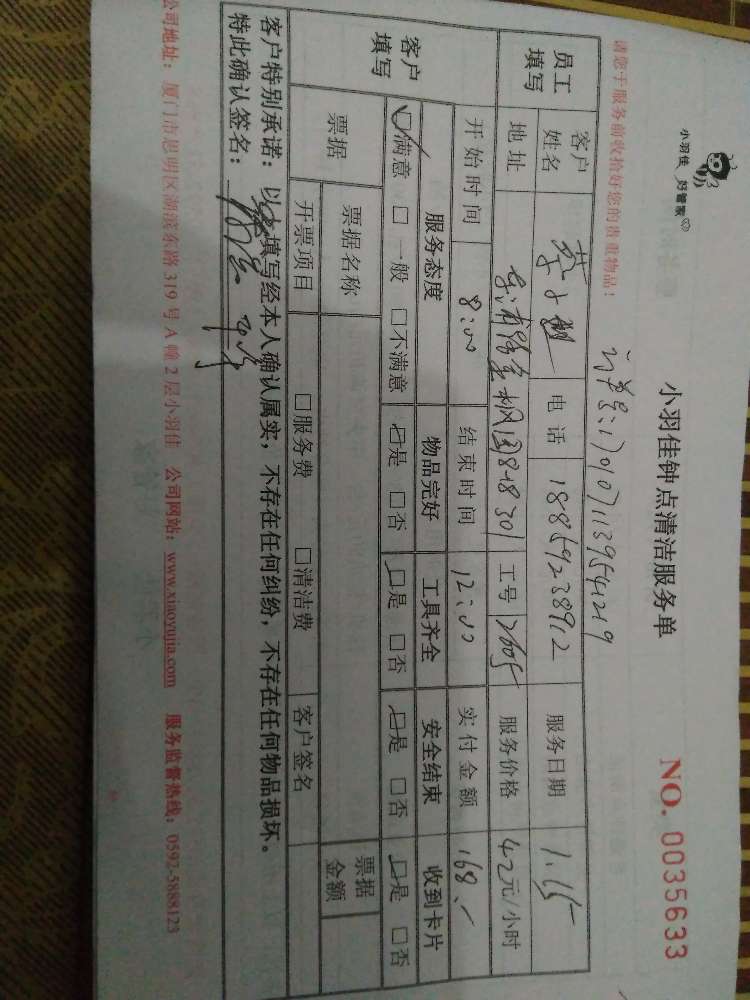 小羽佳 好管家
小羽佳钟点清洁服务单
NO. 0035633
请您于服务前收拾好您的贵重物品！
员工填写 客户姓名 电话 18859238912 服务日期 1.15
地址 工号 2605 服务价格 42元/小时
开始时间 8:00 结束时间 12:00 实付金额 168.
客户填写 服务态度 物品完好 工具齐全 安全结束 收到卡片
☑满意 □一般 □不满意 ☑是 □否 ☑是 □否 ☑是 □否 ☑是 □否
票据 票据名称 票据金额
开票项目 □服务费 □清洁费 客户签名
客户特别承诺：以上填写经本人确认属实，不存在任何纠纷，不存在任何物品损坏。
特此确认签名：
公司地址：厦门市思明区湖滨东路319号A幢2层小羽佳 公司网站：www.xiaoyujia.com 服务监督热线：0592-5888123